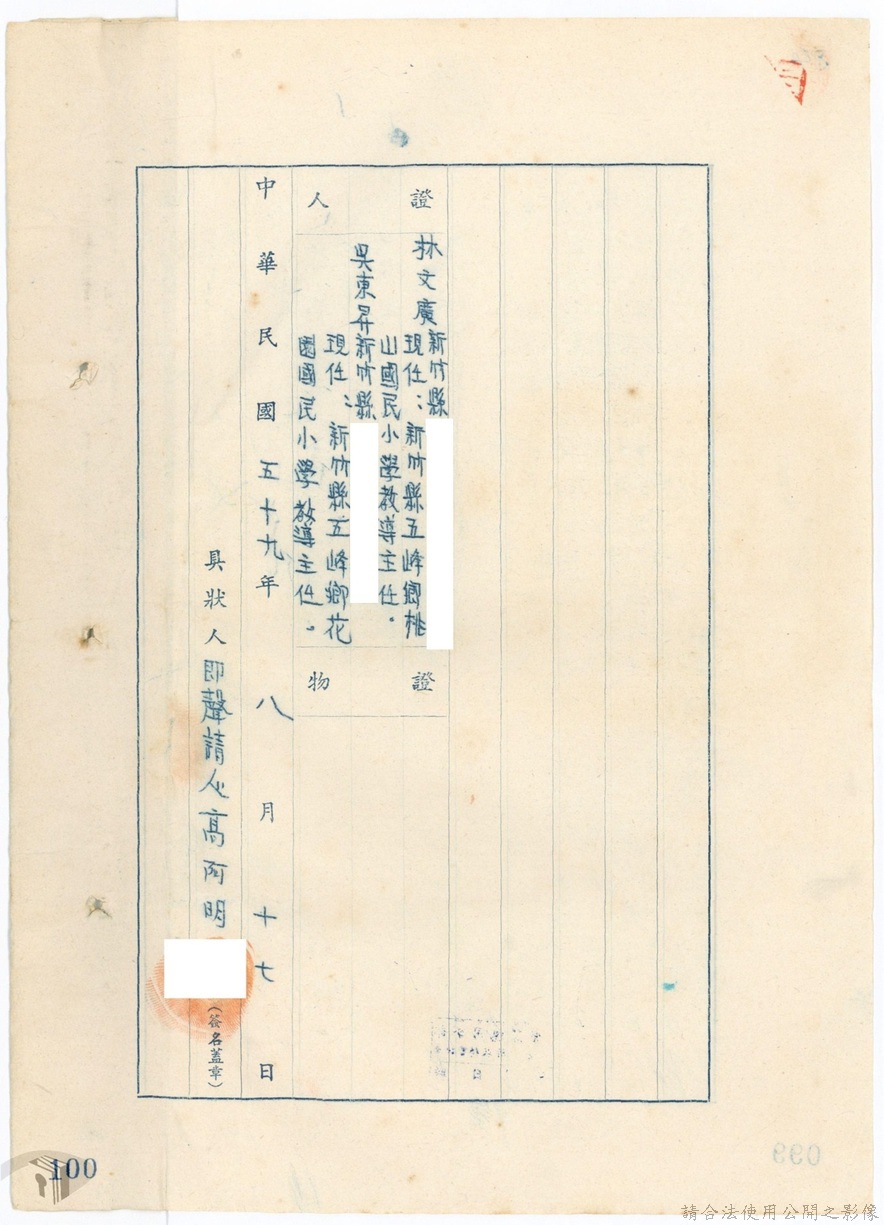 證人
林文廣
新竹縣
現任:新竹縣五峰鄉桃
山國民小學教導主任。
吳東昇
新竹縣
現任:新竹縣五峰鄉花
園國民小學教導主任。
證物
中華民國五十九年八月十七日
具狀人即聲請人高阿明
(簽名蓋章)
100
099
請合法使用公開之影像